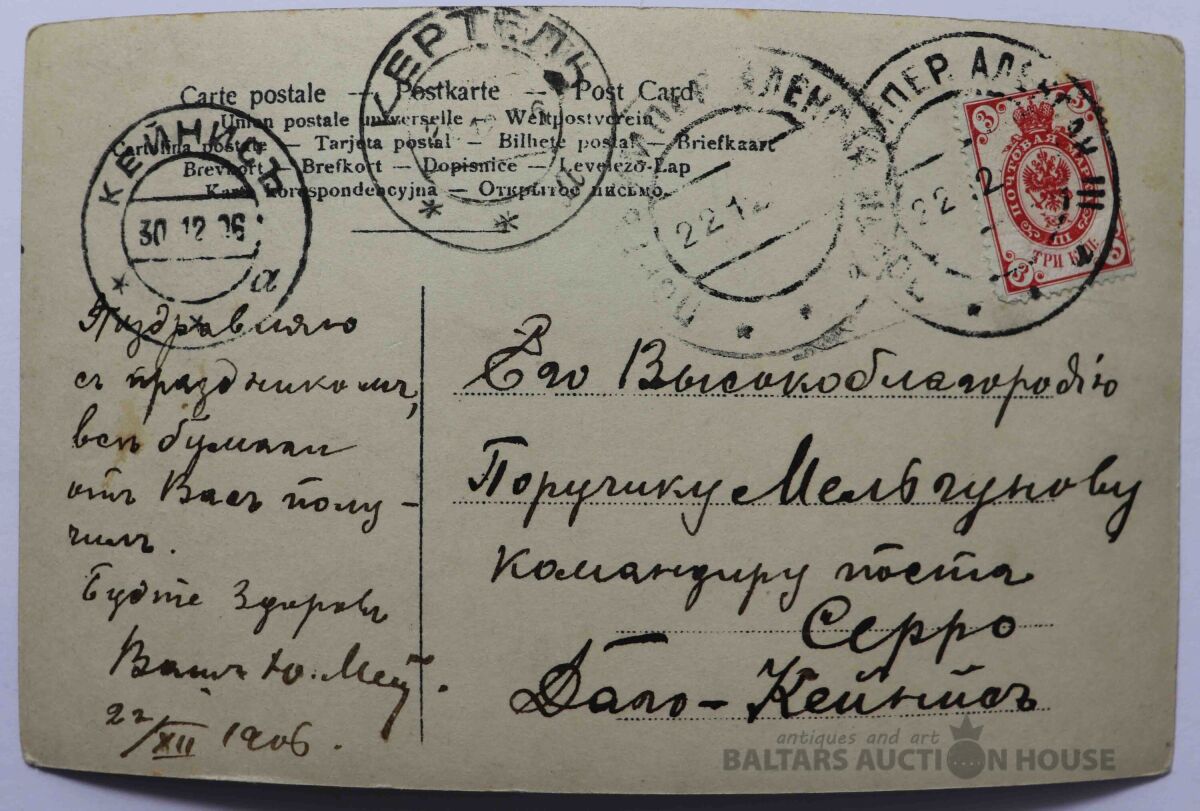 КЕРТЕЛЬ
Carte postale — Postkarte — Post Card
Union postale universelle — Weltpostverein
Cartolina postale — Tarjeta postal — Bilhete postal — Briefkaart
Brevkort — Brefkort — Dopisnice — Levelező-Lap
Karta korespondencyjna — Открытое письмо.
КЕЙНИСЪ
30 12 06
а
22 12
22 12
ИПЕР АЛЕКСАН III
3 3
ПОЧТОВАЯ МАРКА
III
3 3
ТРИ КОП.
Поздравляю
съ праздникомъ,
всѣ бумаги
отъ Васъ полу-
чилъ.
Будте здоровъ
Вашъ Ю.
22/XII 1906.
Его Высокоблагородію
Поручику Мельгунову
Командиру поста
Серро
Даго-Кейнисъ
antiques and art
BALTARS AUCTION HOUSE